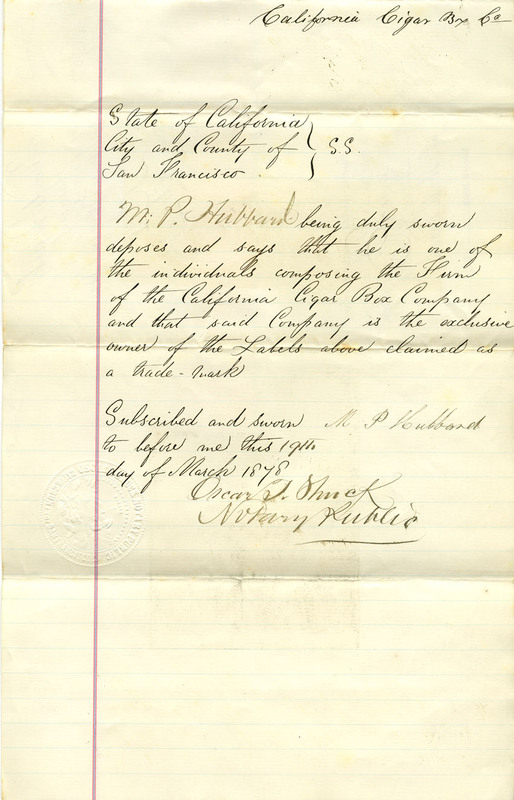 California Cigar Box Co
State of California
City and County of } S.S.
San Francisco .
M. P. Hubbard being duly sworn
deposes and says that he is one of
the individuals composing the Firm
of the California Cigar Box Company
and that said Company is the exclusive
owner of the Labels above claimed as
a trade-mark
Subscribed and sworn M. P Hubbard
to before me this 19th
day of March 1878
Oscar T. Shuck
Notary Public